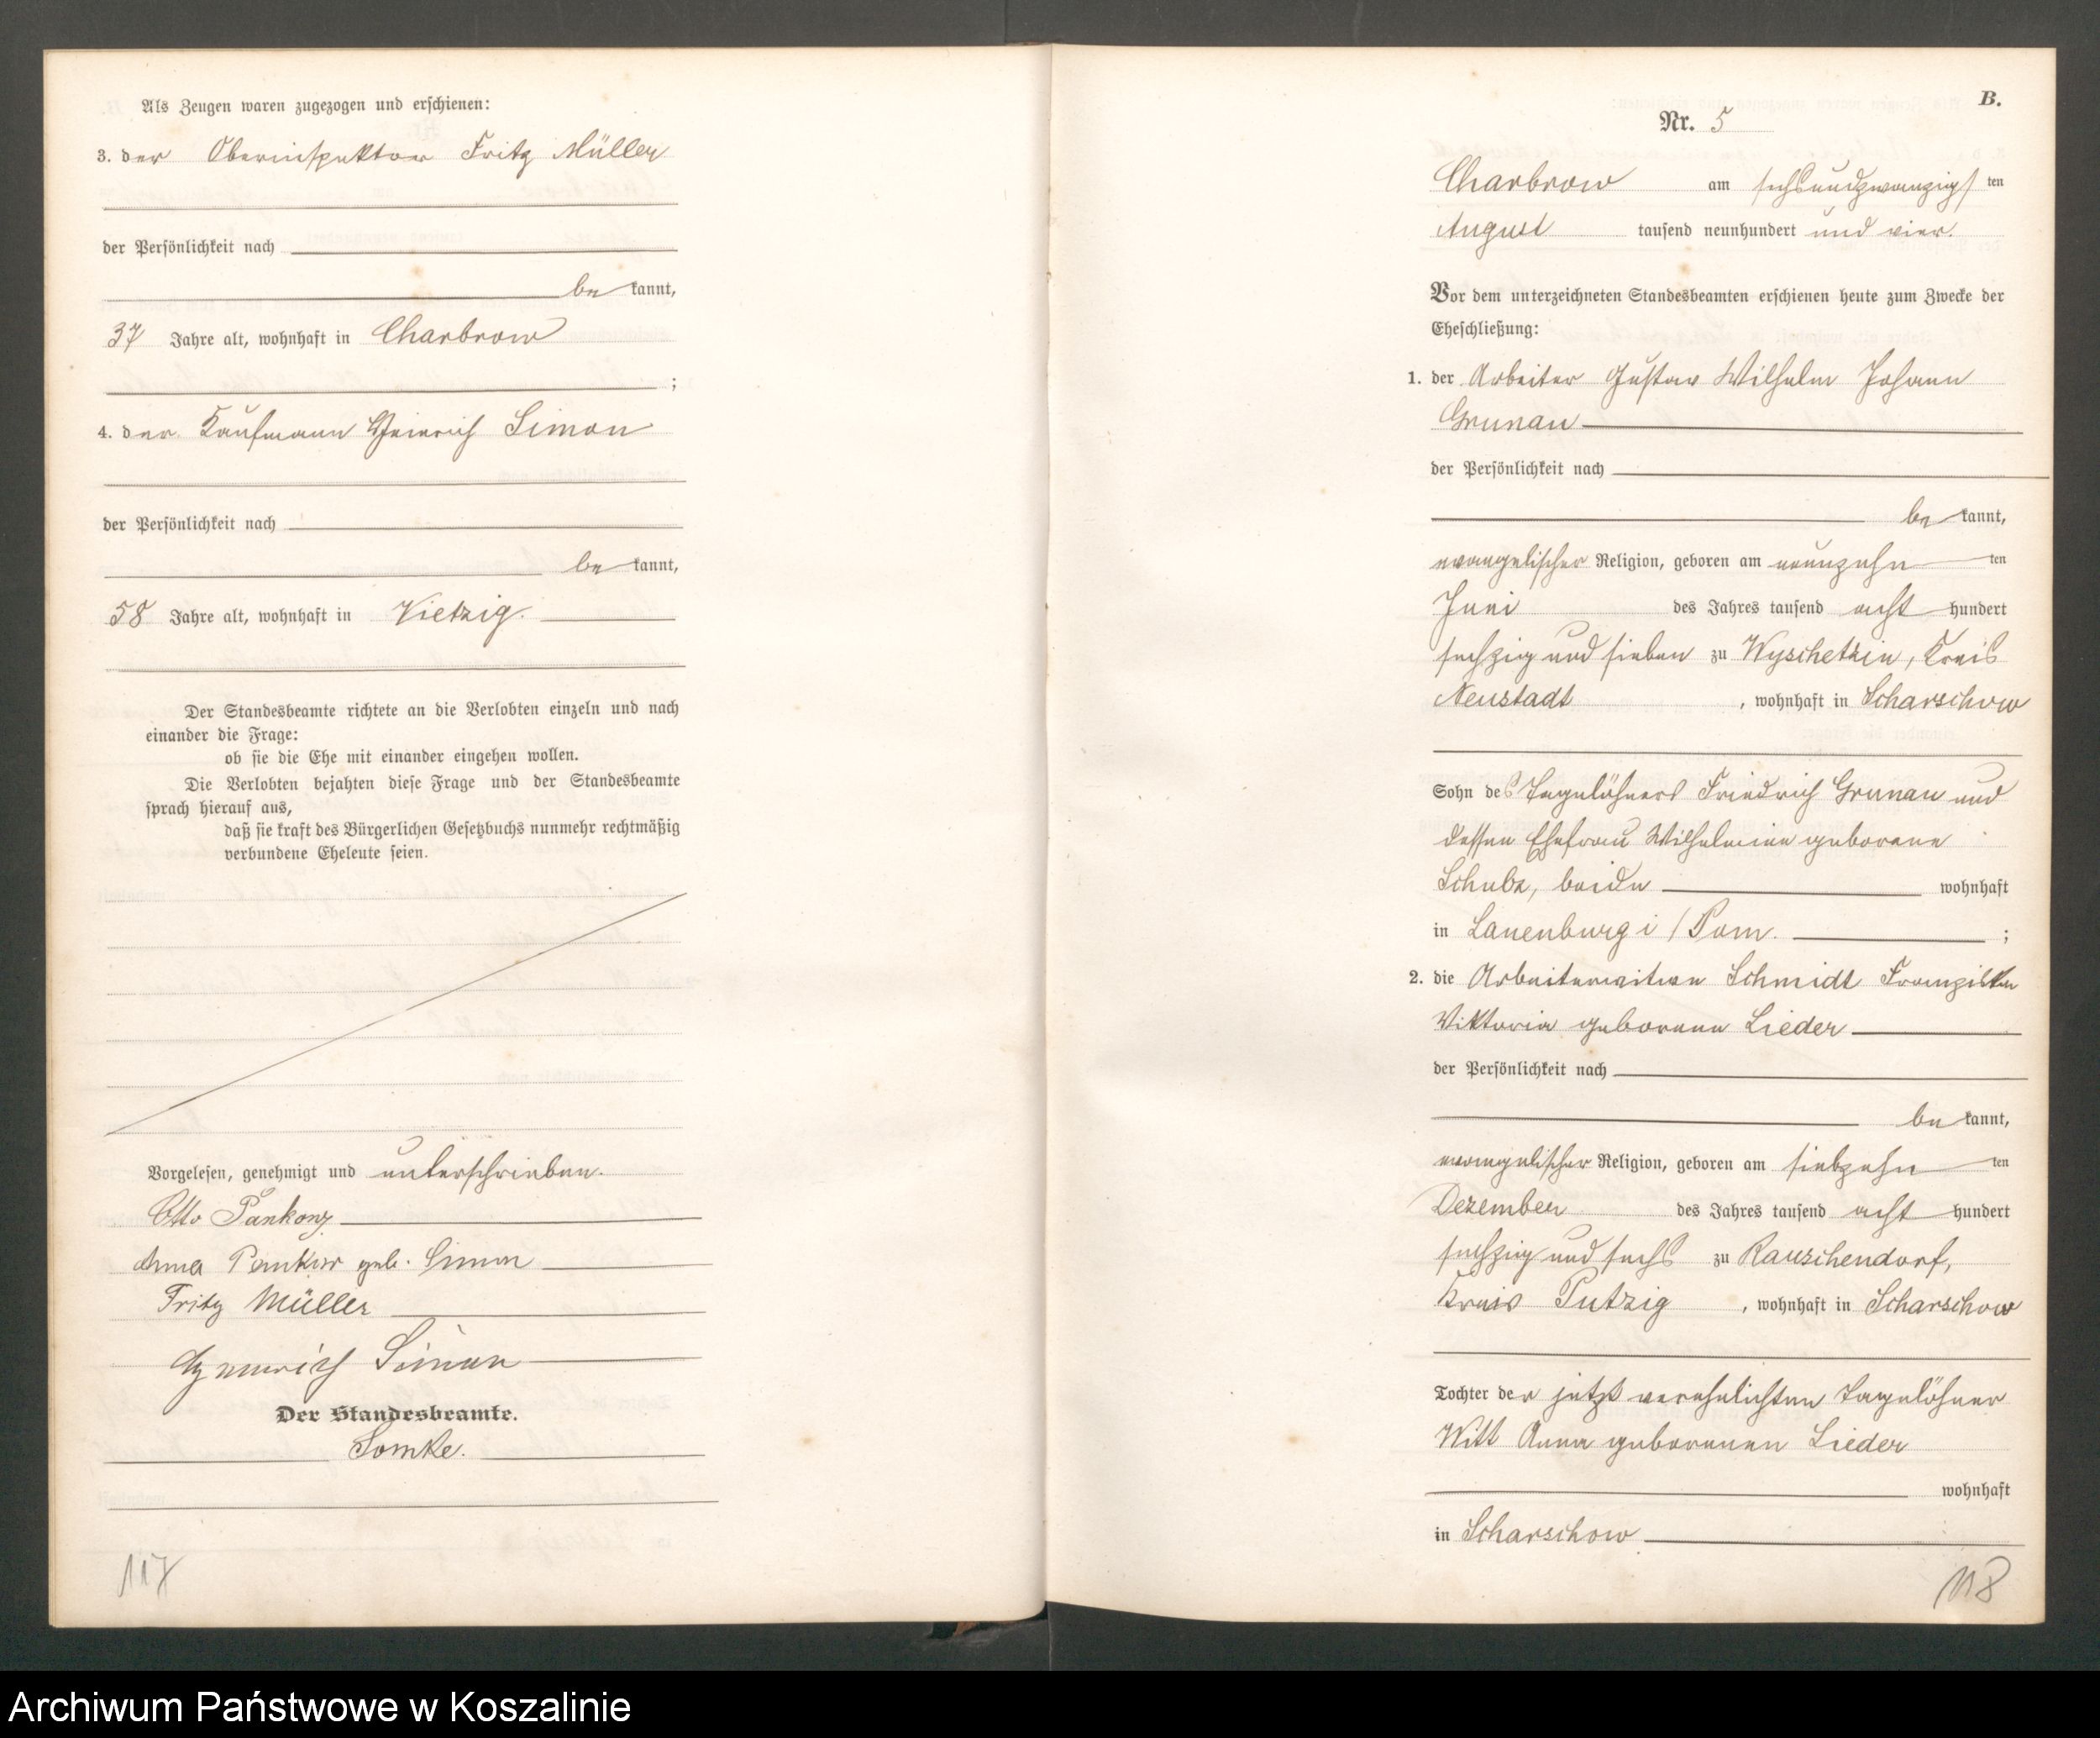 Als Zeugen waren zugezogen und erschienen:
3. der Oberinspektor Fritz Müller
der Persönlichkeit nach
be kannt,
37 Jahre alt, wohnhaft in Charbrow
;
4. der Kaufmann Heinrich Simon
der Persönlichkeit nach
be kannt,
58 Jahre alt, wohnhaft in Vietzig.
Der Standesbeamte richtete an die Verlobten einzeln und nach
einander die Frage:
ob sie die Ehe mit einander eingehen wollen.
Die Verlobten bejahten diese Frage und der Standesbeamte
sprach hierauf aus,
daß sie kraft des Bürgerlichen Gesetzbuchs nunmehr rechtmäßig
verbundene Eheleute seien.
Vorgelesen, genehmigt und unterschrieben.
Otto
Anna geb. Simon
Fritz Müller
Heinrich Simon
Der Standesbeamte.
117
B.
Nr. 5
Charbrow am sechsundzwanzigs ten
August tausend neunhundert und vier.
Vor dem unterzeichneten Standesbeamten erschienen heute zum Zwecke der
Eheschließung:
1. der Arbeiter Gustav Wilhelm Johann
Grunau
der Persönlichkeit nach
be kannt,
evangelischer Religion, geboren am neunzehn ten
Juni des Jahres tausend acht hundert
sechzig und sieben zu Wyschetzin, Kreis
Neustadt, wohnhaft in Scharschow
Sohn des Tagelöhners Friedrich Grunau und
dessen Ehefrau Wilhelmine geborene
Schulz, beide wohnhaft
in Lauenburg i/Pom. ;
2. die Arbeiterwitwe Schmidt Franziska
Viktoria geborene Lieder
der Persönlichkeit nach
be kannt,
evangelischer Religion, geboren am siebzehn ten
Dezember des Jahres tausend acht hundert
sechzig und sechs zu Rauschendorf,
Kreis Putzig, wohnhaft in Scharschow
Tochter der jetzt verehelichten Tagelöhner
Witt Anna geborenen Lieder
wohnhaft
in Scharschow
118
Archiwum Państwowe w Koszalinie